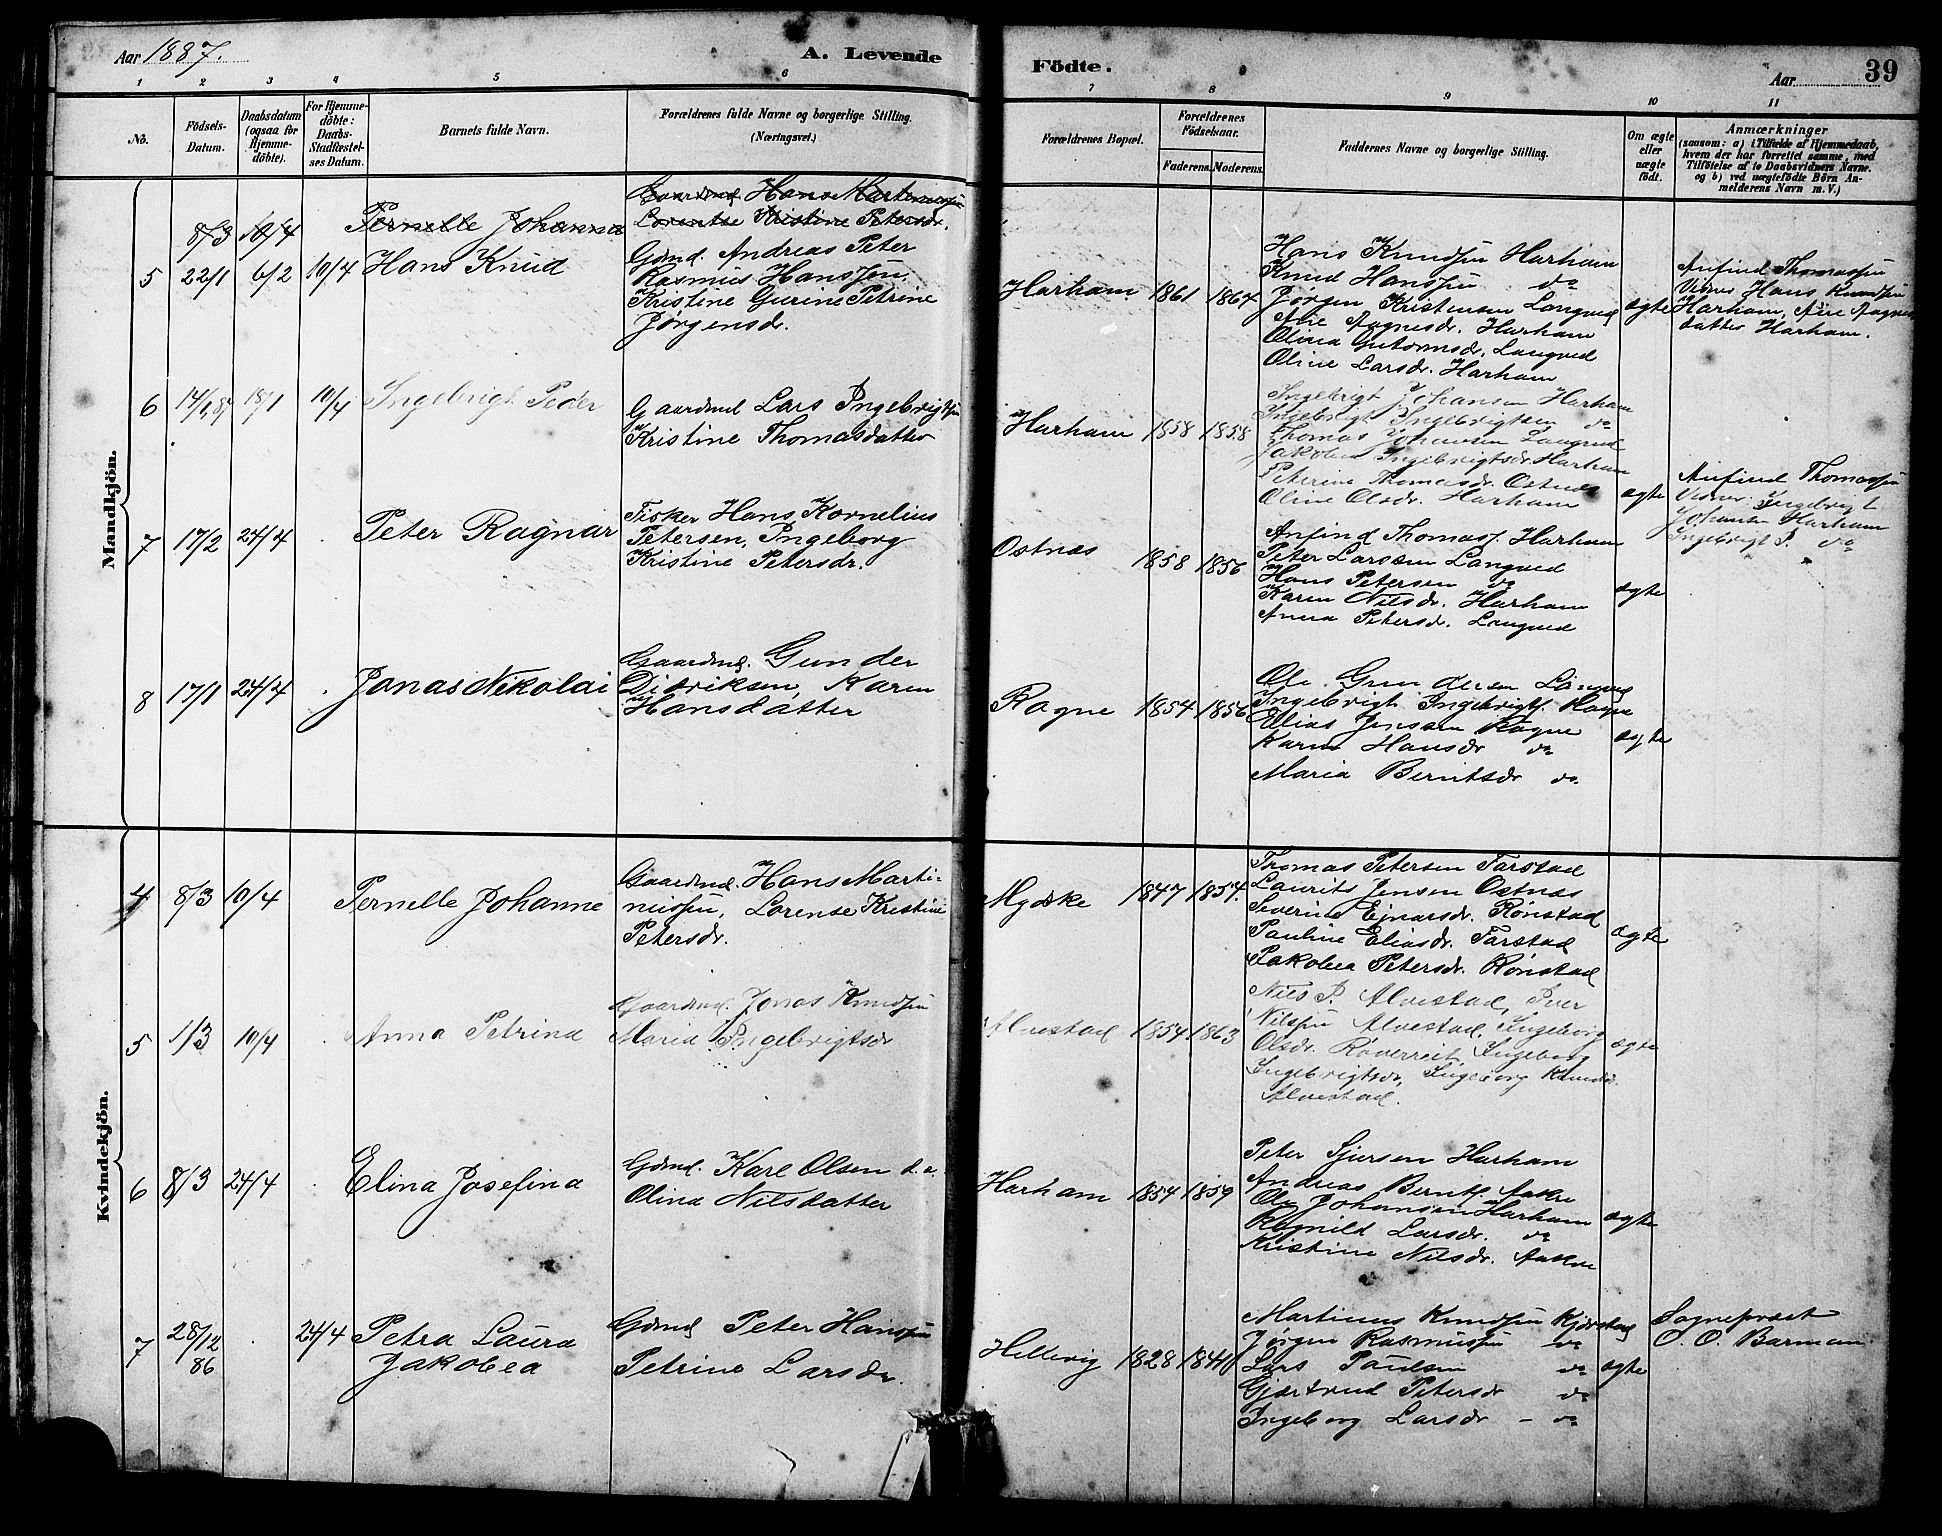 Aar 1887.
A. Levende
Födte.
Aar
39
1 2 3 4 5 6 7 8 9 10 11
No.
Födsels-Datum.
Daabsdatum (ogsaa for Hjemmedöbte).
For Hjemmedöbte: Daabs-Stadfæstelses Datum.
Barnets fulde Navn.
Forældrenes fulde Navne og borgerlige Stilling.
(Næringsvei.)
Forældrenes Bopæl.
Forældrenes Födselsaar.
Faderens. Moderens.
Faddernes Navne og borgerlige Stilling.
Om ægte eller uægte födt.
Anmærkninger
(saasom: a) i Tilfælde af Hjemmedaab, hvem der har forrettet samme, med Tilföielse af to Daabsvidners Navne, og b) ved uægtefödte Börn Anmelderens Navn m. V.)
Mandkjön.
8/3 10/4 Pernelle Johanna
Gaardmd Hans Martinussen
Lorentse Kristine Petersdr.
5 22/1 6/2 10/4 Hans Knud
Gdmd. Andreas Peter
Rasmus Hanssen
Kristine Gurine Petrine
Jørgensdr.
Harham 1861 1864
Hans Knudsen Harham
Knud Hanssen do
Jørgen Kristensen Langved
Ane Aagnesdr. Harham
Olina Gutormsdr. Langved
Oline Larsdr. Harham
ægte
Anfind Thomassen
Vidner Hans Knudsen
Harham, Ane Aagnes
datter Harham.
6 14/1 87 18/1 10/4 Ingebrigt Peder
Gaardmd Lars Ingebrigtsen
Kristine Thomasdatter
Harham 1858 1858
Ingebrigt Johansen Harham
Ingebrigt Ingebrigtsen do
Thomas Johansen Langved
Jakobea Ingebrigtsdr Harham
Peterine Thomasdr. Ostnæs
Oline Olsdr. Harham
ægte
Anfind Thomassen
Vidner Ingebrigt
Johansen Harham
Ingebrigt I. do
7 17/2 24/4 Peter Ragnar
Fisker Hans Kornelius
Petersen, Ingeborg
Kristine Petersdr.
Ostnæs 1858 1856
Anfind Thomass. Harham
Peter Larssen Langved
Hans Petersen do
Karen Nilsdr. Harham
Anna Petersdr. Langved
ægte
8 17/1 24/4 Jonas Nikolai
Gaardmd. Gunder
Didriksen, Karen
Hansdatter
Rogne 1854 1856
Ole Gundersen
Ingebrigt Ingebrigts. Rogne
Elias Jensen Rogne
Karen Hansdr do
Maria Berntsdr do
ægte
Kvindekjön.
4 8/3 10/4 Pernelle Johanne
Gaardmd. Hans Marti-
nussen, Lorense Kristine
Petersdr.
Myske 1847 1857.
Thomas Petersen Farstad
Laurits Jensen Ostnæs
Severine Ejnarsdr. Rønstad
Pauline Eliasdr. Farstad
Jakobea Petersdr. Rønstad
ægte
5 1/3 10/4 Anna Petrina
Gaardmd. Jonas Knudsen
Maria Ingebrigtsdr
Alvestad 1854 1863
Nils P. Alvestad, Iver
Nilssen Alvestad, Ingeborg
Olsdr. Ingeborg
Ingebrigtsdr, Ingeborg Knudsdr.
Alvestad.
ægte
6 8/3 24/4 Elina Josefina
Gdmd. Karl Olsen
Olina Nilsdatter
Harham 1854 1859
Peter Sjursen Harham
Andreas Bernts. Aakre
Ole Johansen Harham
Ragnild Larsdr. do
Kristine Nilsdr. Aakre
ægte
7 28/12 86 24/4 Petra Laura
Jakobea
Gdmd Peter Hanssen
Petrine Larsdr.
Hellevig 1828 1841
Martinus Knudsen Kjørstad
Jørgen Rasmussen do
Lars Paulsen do
Gjærtrud Petersdr do
Ingeborg Larsdr - do
ægte
Sognepræst
O. O. Barman